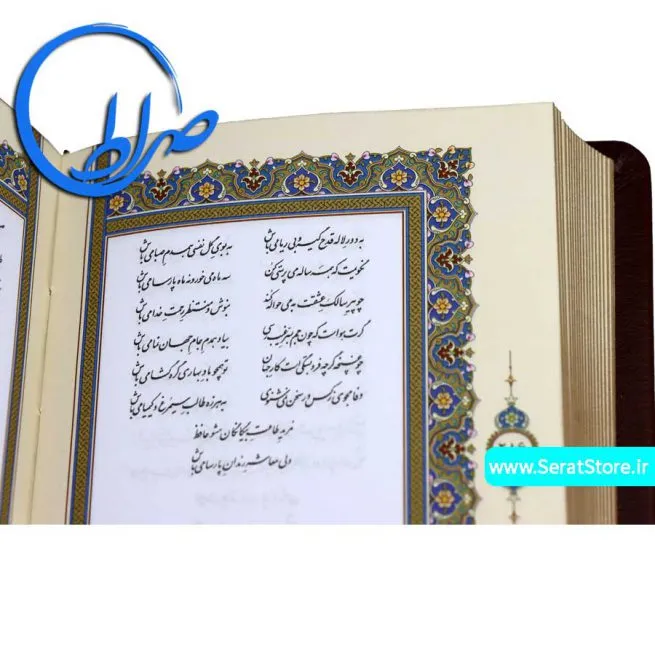 صراط
به دور لاله قدح گیر و بی ریا می باش به بوی گل نفسی همدم صبا می باش
نگویمت که همه ساله می پرستی کن سه ماه می خور و نه ماه پارسا می باش
چو پیر سالک عشقت به می حواله کند بنوش و منتظر رحمت خدا می باش
گرت هواست که چون جم به سر غیب رسی بیا و همدم جام جهان نما می باش
چو غنچه گرچه فروبستگی است کار جهان تو همچو باد بهاری گره گشا می باش
وفا مجوی ز کس ور سخن نمی شنوی به هرزه طالب سیمرغ و کیمیا می باش
مرید طاعت بیگانگان مشو حافظ
ولی معاشر رندان پارسا می باش
www.SeratStore.ir